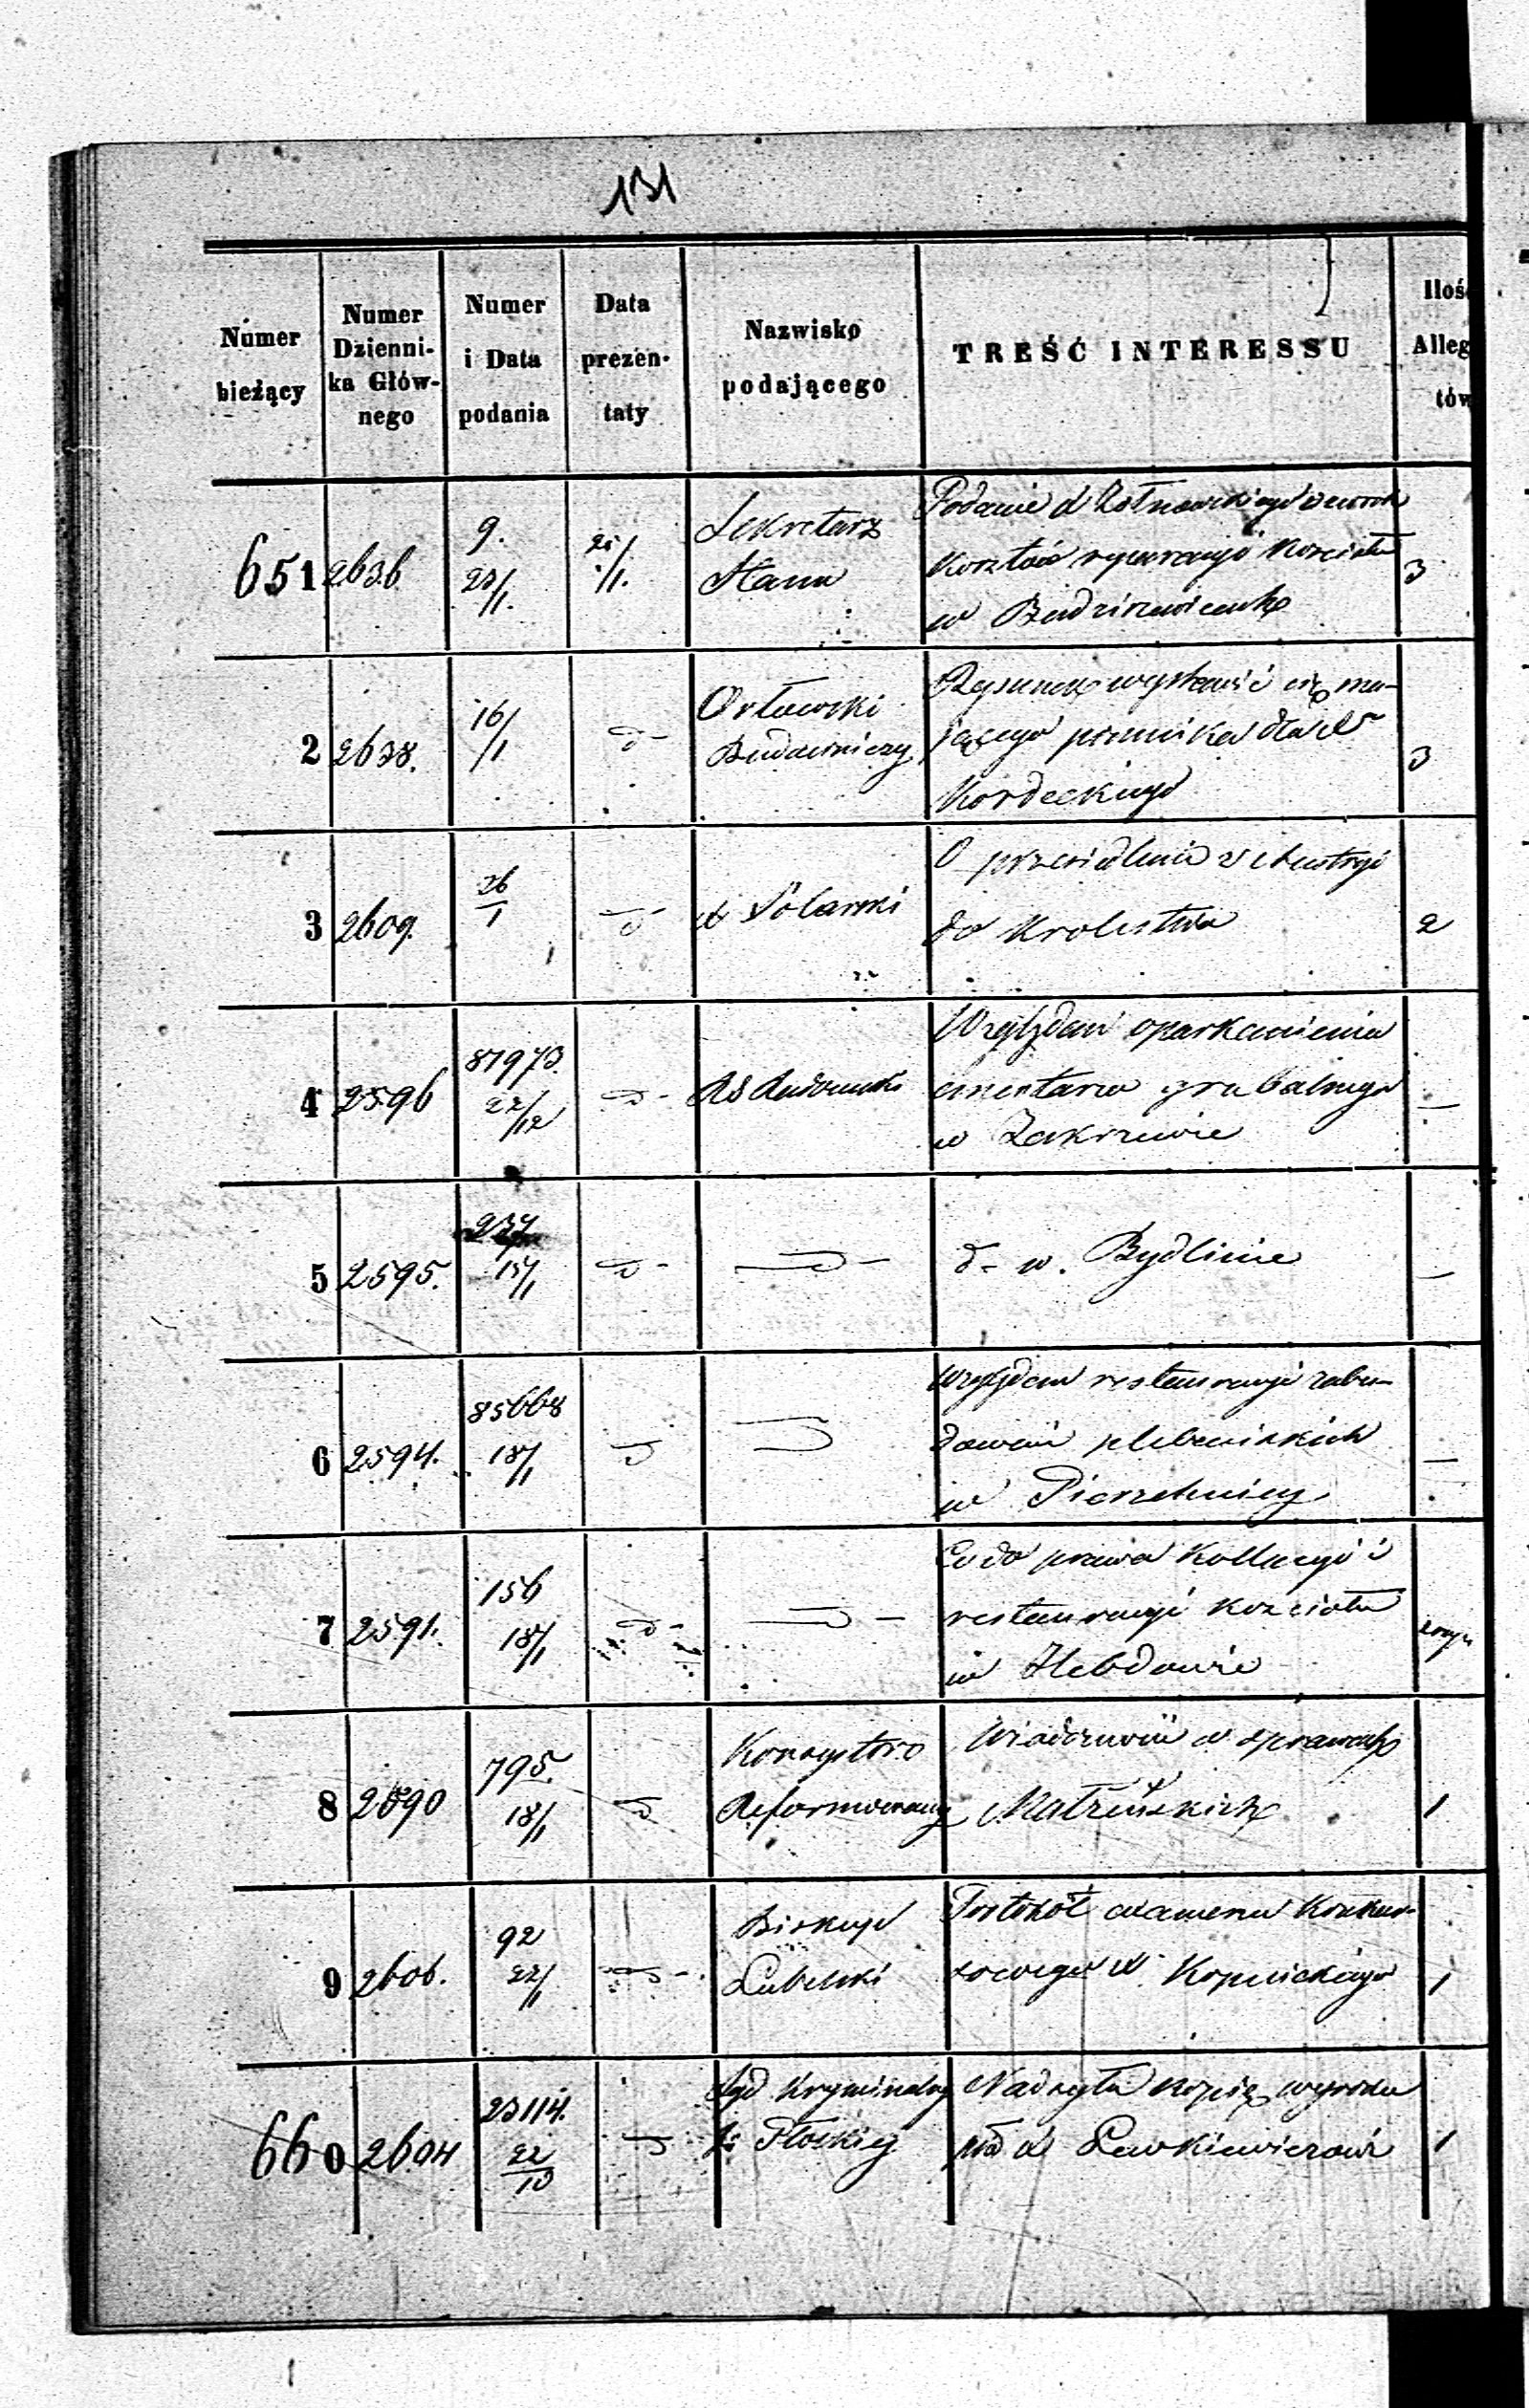 131
Numer bieżący
Numer Dzienni-
ka Głów-
nego
Numer i Data podania
Data prezen-
taty
Nazwisko podającego
TREŚĆ INTERESSU
Iloś
Alleg
tów
651 2636 9. 23/1. 25/1. Sekretarz Stanu
Podanie X
kosztów reparacyi kościoła
w
3
2 2638. 16/1 d- Orłowski Budowniczy
Rysunek wystawić się ma-
jącego pomnika dla X
Kordeckiego
3
3 2609. 26/1 d- X Polarski
O przesiedlenie z Austryi
do Krolestwa
2
4 2596 87973. 22/12 d- RG Radomski
Względem oparkanienia
cmentarza grzebalnego
w Zakrzewie
—
5 2595. 237 15/1 d- d-
d- w. Bydlinie
—
6 2594. 85668 18/1 d d
Względem restauracyi zabu-
dowań plebańskich
w Pierzchnicy
—
7 2591. 156 18/1 d- d-
Co do prawa Kollacyi i
restauracyi kościoła
w Hebdowie
8 2590 795. 18/1 d Konsystorz Reformowany
Wiadomość o sprawach
Małżeńskich
1
9 2606. 92 22/1 d- Biskup Lubelski
Protokół examenu konkur-
sowego X Kopnickiego
1
660 2604 23114. 22/10 d Sąd Kryminalny Płockiej
Nadsyła kopię wyroku
X Lewkiewiczowi
1